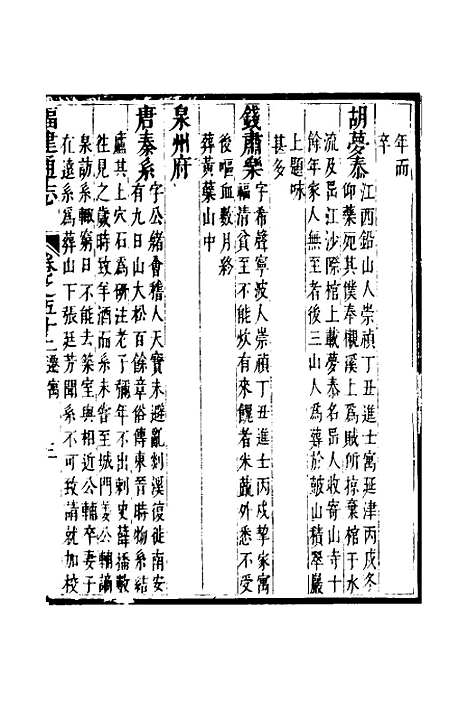 年而
卒
胡夢泰
江西鉛山人崇禎丁丑進士寓延津丙戌冬
仰藥死其僕奉櫬溪上為賊所掠棄棺于水
流及邑江沙際棺上載夢泰名邑人收寄山寺十
餘年家人無至者後三山人為葬於皷山積翠巖
上題味
甚多
錢肅樂
字希聲寧波人崇禎丁丑進士丙戌挈家寓
福清貧至不能炊有來饋者米蔬外悉不受
後嘔血數月終
葬黃蘗山中
泉州府
唐秦系
字公緒會稽人天寶末避亂剡溪復徙南安
有九日山大松百餘章俗傳東晉時物系結
廬其上穴石為硯注老子彌年不出刺史薛播數
往見之歲時致羊酒而系未嘗至城門姜公輔謫
泉訪系輙窮日不能去築室與相近公輔卒妻子
在遠系為葬山下張廷芳聞系不可致請就加校
福建通志
卷之五十二
遷寓
三